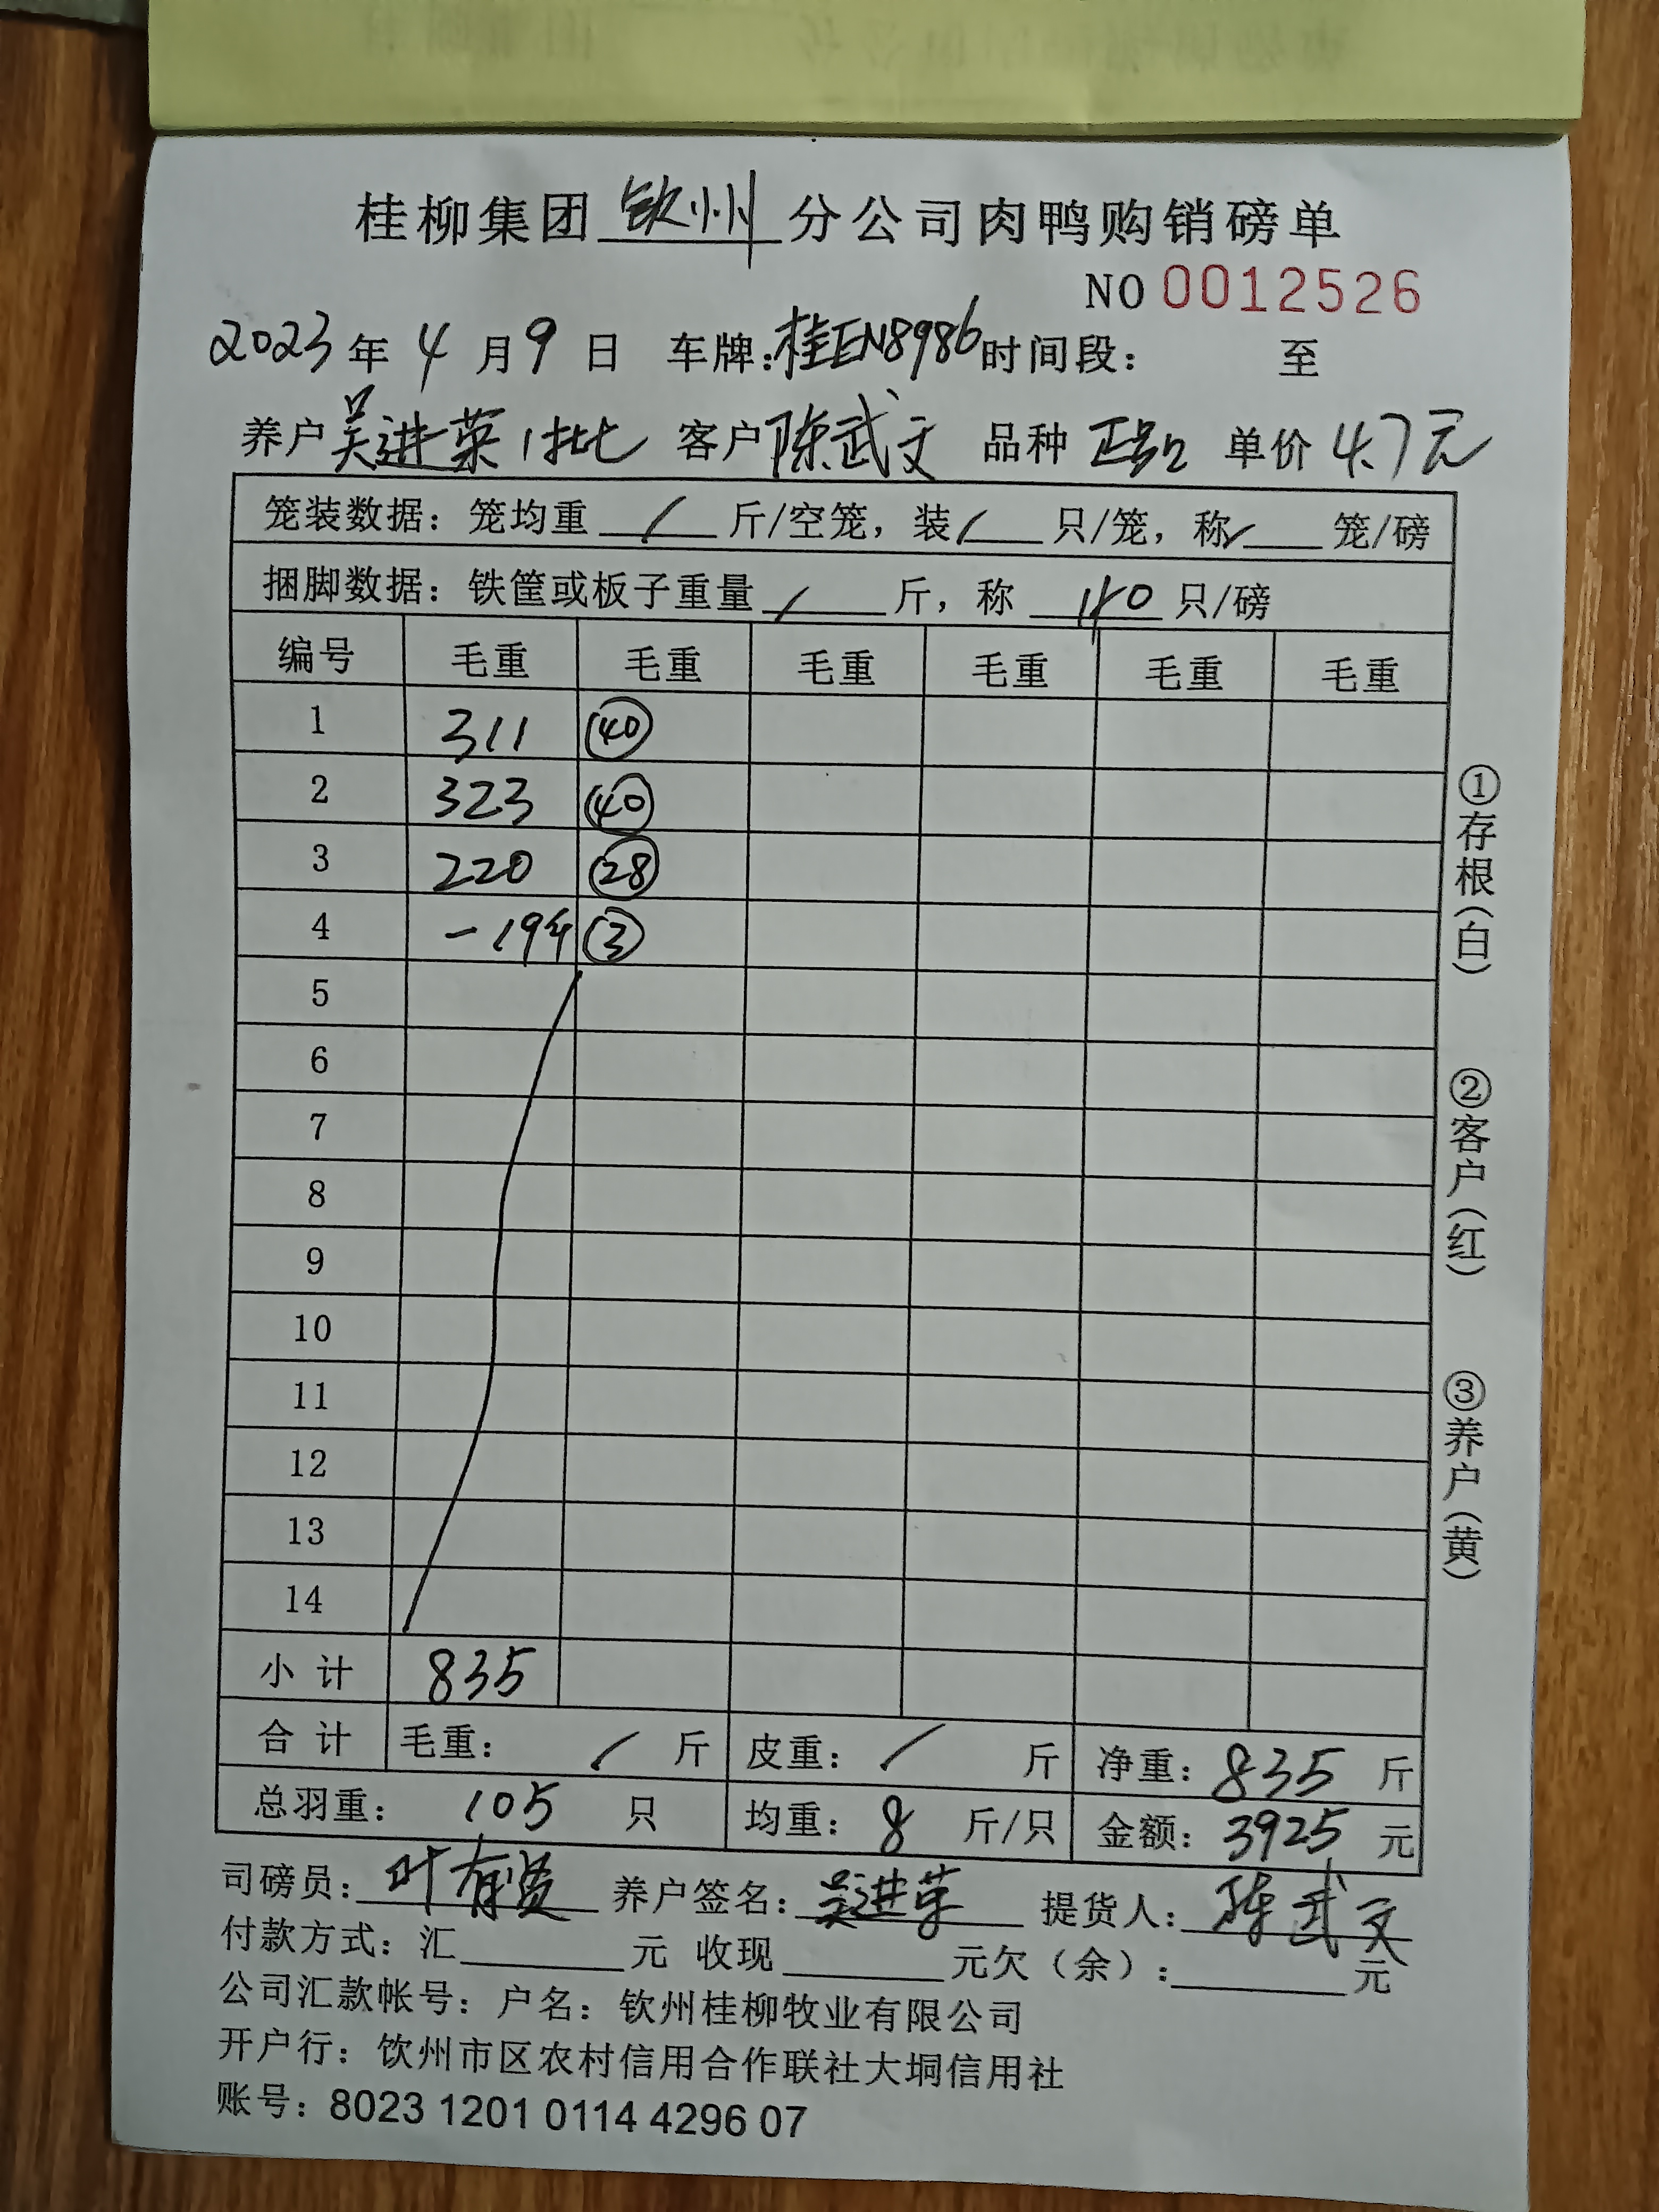 桂柳集团钦州分公司肉鸭购销磅单
NO 0012526
2023年4月9日 车牌:桂EN8986时间段: 至
养户吴进荣1批 客户陈武文 品种 正品 单价 4.7元
笼装数据: 笼均重 / 斤/空笼, 装/ 只/笼, 称/ 笼/磅
捆脚数据: 铁筐或板子重量 / 斤, 称 40 只/磅
编号 毛重 毛重 毛重 毛重 毛重 毛重
1 311 40
2 323 40
3 220 28
4 -19 3
5
6
7
8
9
10
11
12
13
14
小计 835
合计 毛重: / 斤 皮重: / 斤 净重: 835 斤
总羽重: 105 只 均重: 8 斤/只 金额: 3925 元
司磅员: 叶有贤 养户签名: 吴进荣 提货人: 陈武文
付款方式: 汇 元 收现 元欠(余): 元
公司汇款帐号: 户名: 钦州桂柳牧业有限公司
开户行: 钦州市区农村信用合作联社大垌信用社
账号: 8023 1201 0114 4296 07
①存根(白)
②客户(红)
③养户(黄)